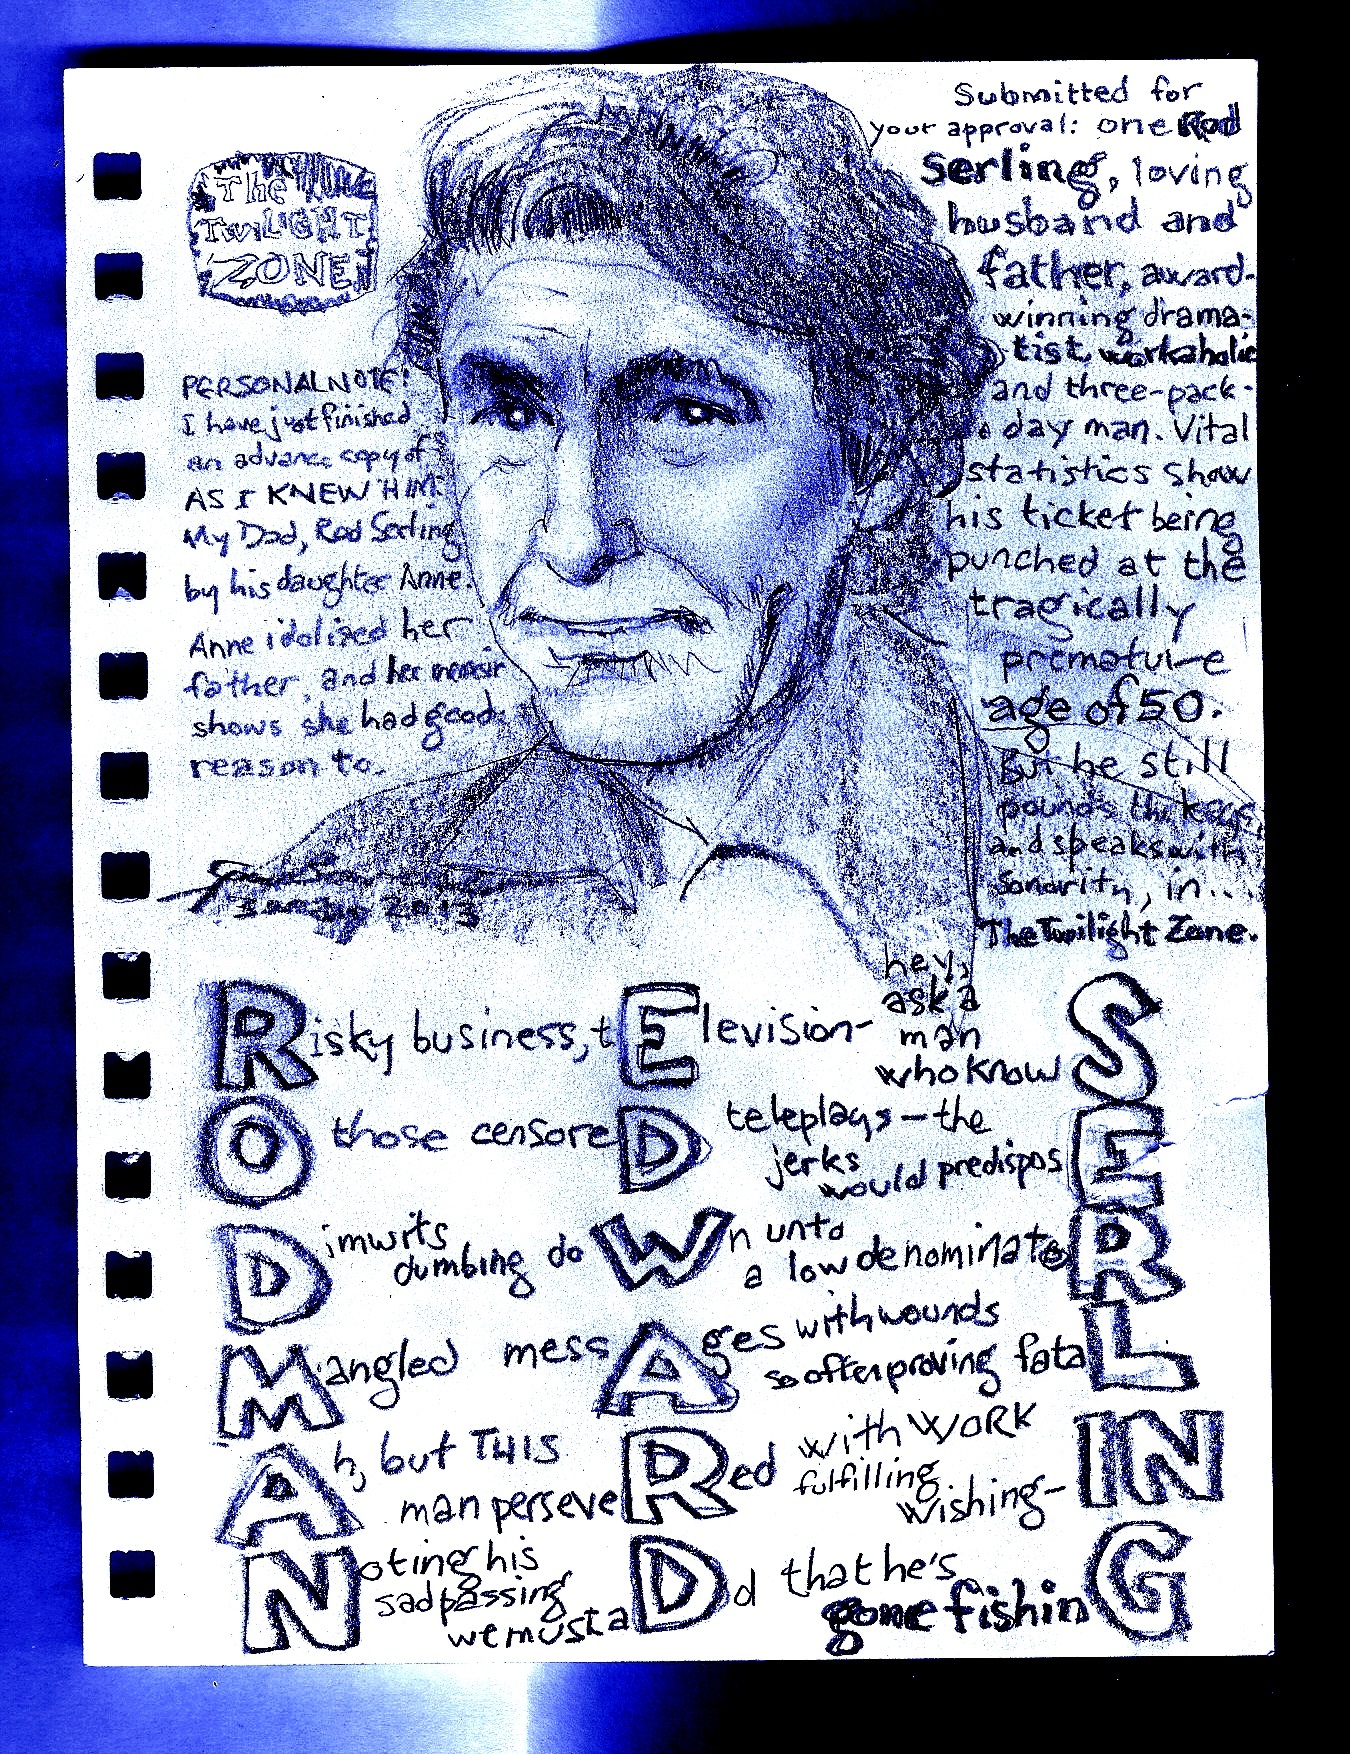 The
TWILIGHT
ZONE
PERSONAL NOTE:
I have just finished
an advance copy of
AS I KNEW HIM:
My Dad, Rod Serling
by his daughter Anne.
Anne idolized her
father, and her memoir
shows she had good
reason to.
Submitted for
your approval: one Rod
Serling, loving
husband and
father, award-
winning drama-
tist, workaholic
and three-pack-
a day man. Vital
statistics show
his ticket being
punched at the
tragically
premature
age of 50.
But he still
pounds the keys,
and speaks with
sonority, in...
The Twilight Zone.
2013
Risky business, tElevision- hey, ask a man who knowS
O those censoreD teleplays—the jerks would predisposE
Dimwits dumbing doWn unto a low denominatoR
Mangled messAges with wounds so often proving fataL
Ah, but THIS man perseveRed with WORK fulfilling wishing-IN
Noting his sad passing we must aDd that he's gone fishinG